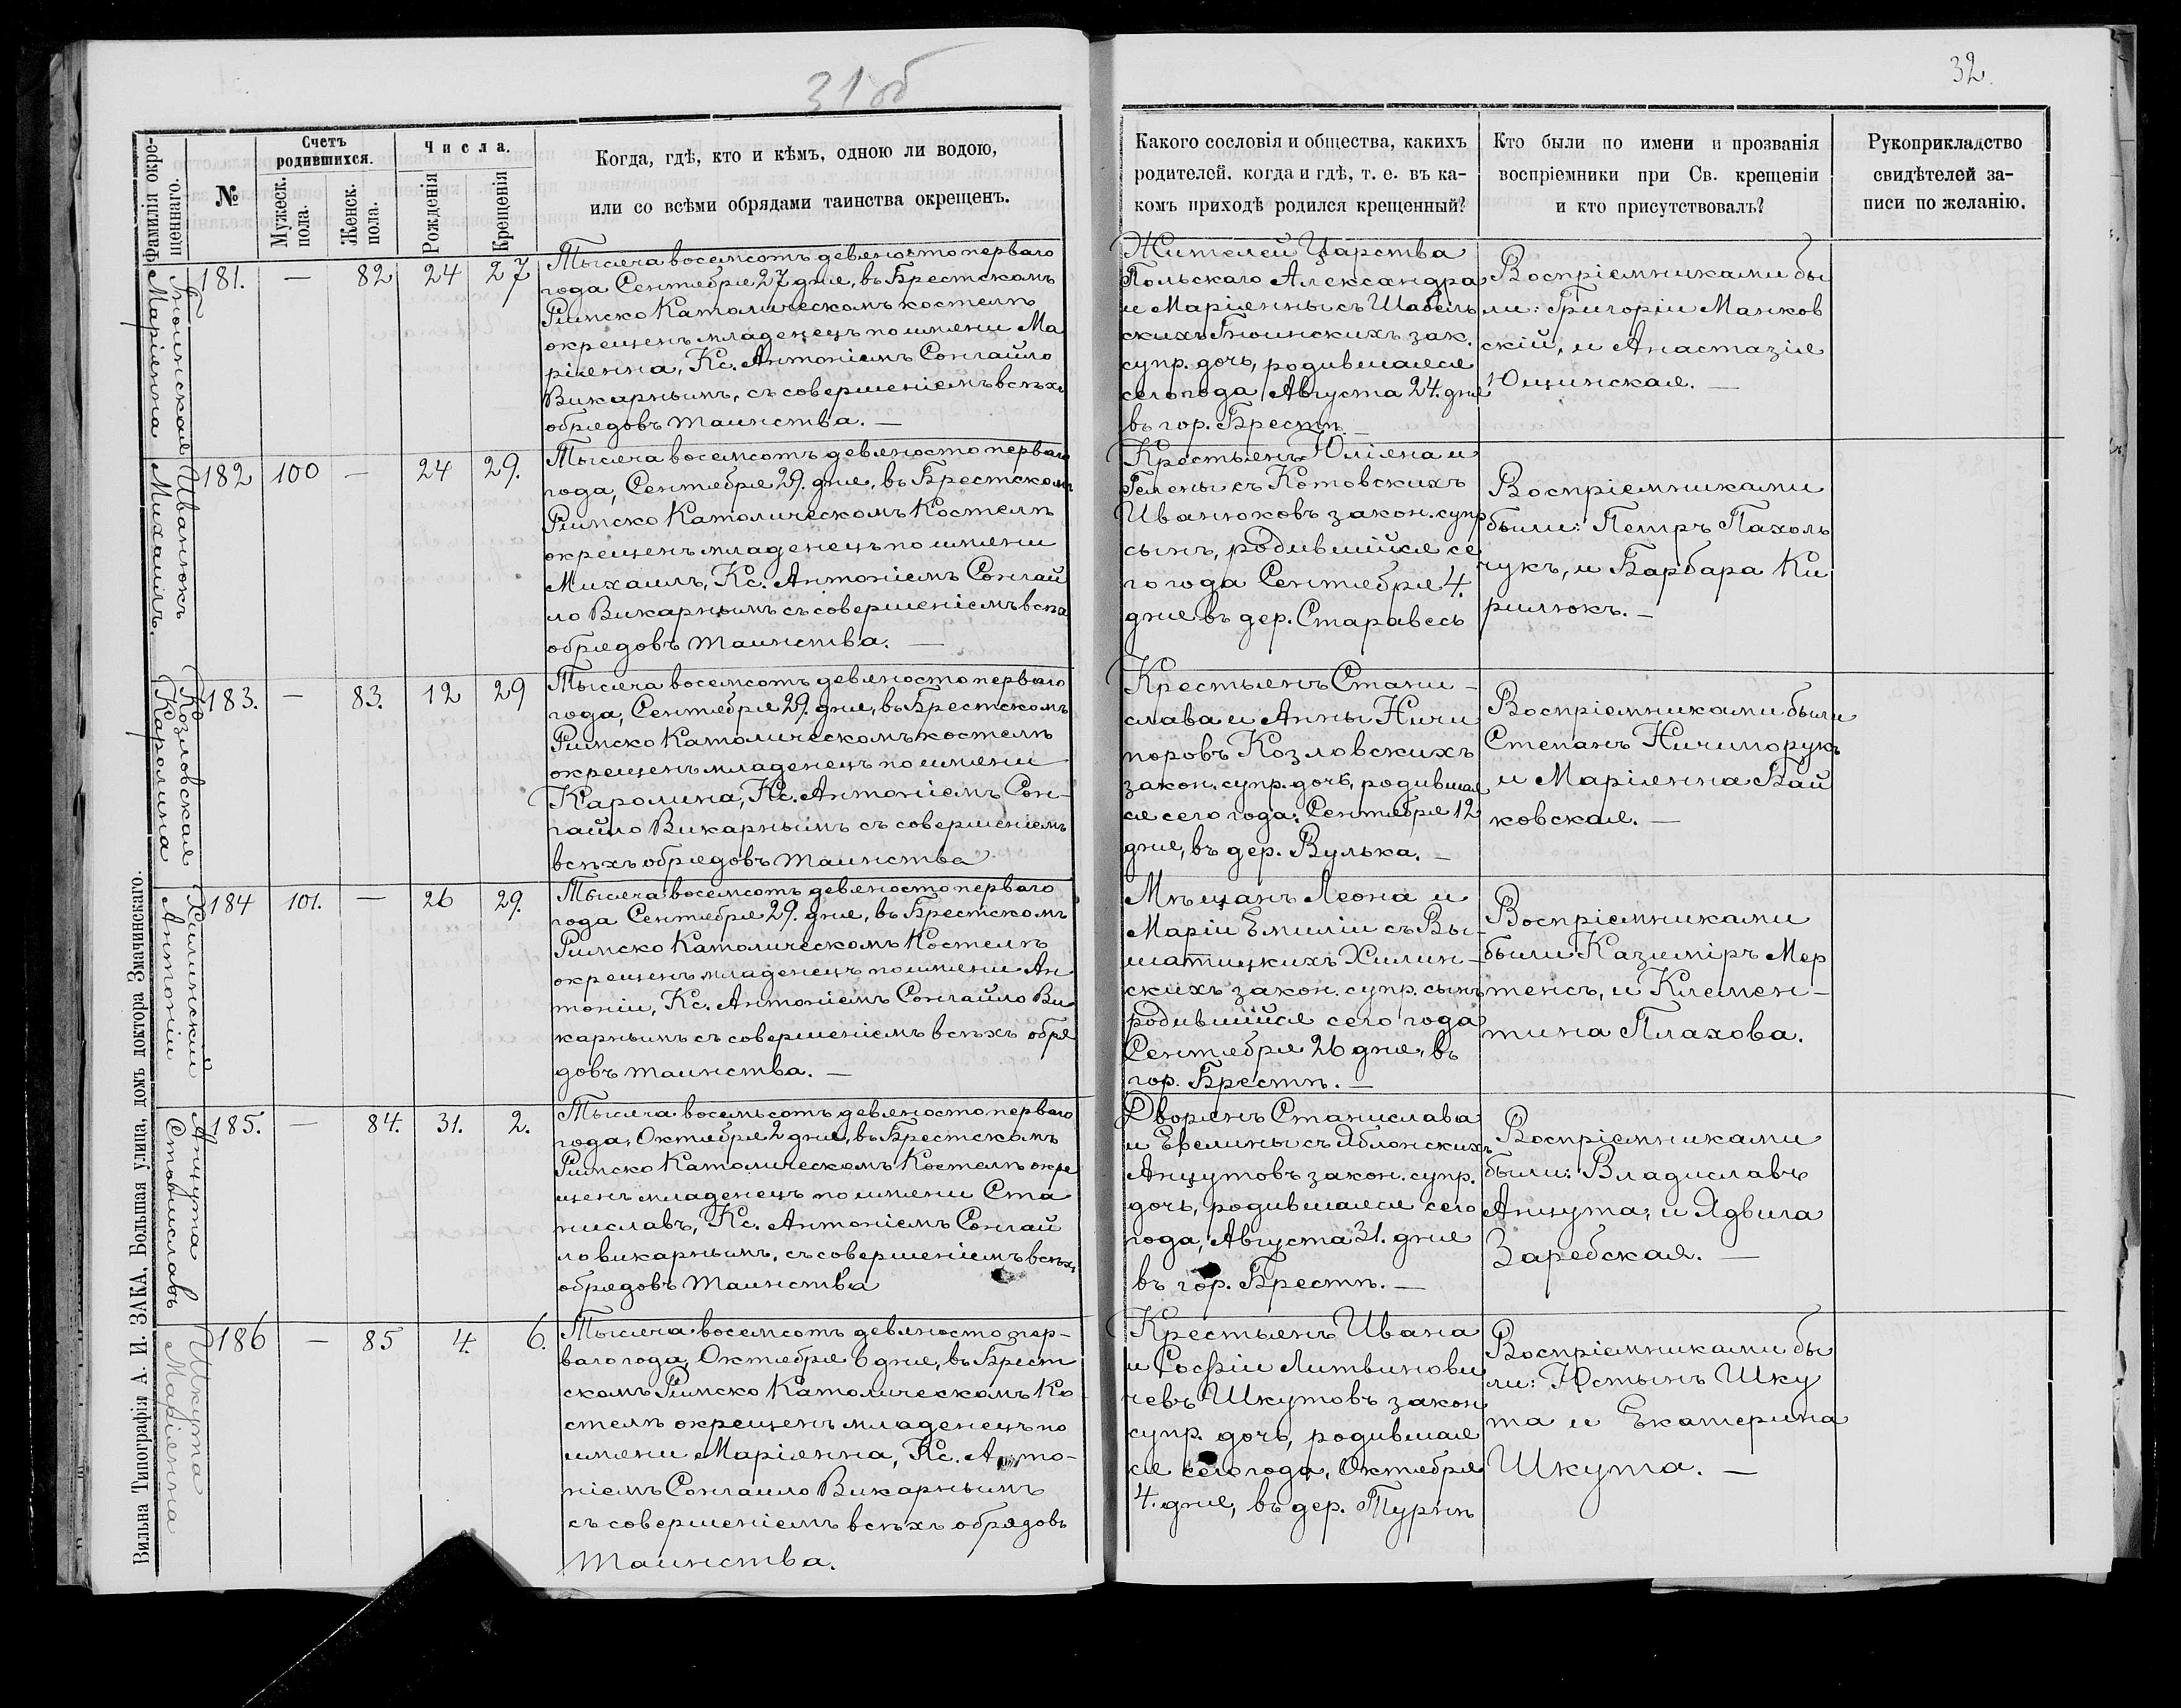 31 об
32.
Фамилія окре-
щеннаго.
№
Счетъ
родившихся.
Мужеск.
пола.
Женск.
пола.
Числа.
Рожденія
Крещенія
Когда, гдѣ, кто и кѣмъ, одною ли водою,
или со всѣми обрядами таинства окрещенъ.
Какого сословія и общества, какихъ
родителей, когда и гдѣ, т. е. въ ка-
комъ приходѣ родился крещенный?
Кто были по имени и прозванія
воспріемники при Св. крещеніи
и кто присутствовалъ?
Рукоприкладство
свидѣтелей за-
писи по желанію.
Гноинская
Маріянна
181. — 82 24 27
Тысяча восемсотъ девяносто перваго
года Сентября 27 дня, въ Брестскомъ
Римско Католическомъ костелѣ
окрещенъ младенецъ по имени Ма
ріянна, Кс. Антоніемъ Сонгайло
Викарнымъ, съ совершеніемъ всѣхъ
обрядовъ таинства. —
Жителей Царства
Польскаго Александра
и Маріянны съ Шабель
скихъ Гноинскихъ зак.
супр. дочь, родившаяся
сего года Августа 24. дня
въ гор. Брестѣ. —
Воспріемниками бы
ли: Григорій Манков
скій, и Анастазія
Ющинская. —
Иванюкъ
Михаилъ.
182 100 — 24 29.
Тысяча восемсотъ девяносто перваго
года, Сентября 29. дня, въ Брестскомъ
Римско Католическомъ Костелѣ
окрещенъ младенецъ по имени
Михаилъ, Кс. Антоніемъ Сонгай
ло Викарнымъ съ совершеніемъ всѣхъ
обрядовъ таинства. —
Крестьянъ Юліяна и
Гелены съ Котовскихъ
Иванюковъ закон. супр
сынъ, родившійся се
го года Сентября 4.
дня въ дер. Старавесь
Воспріемниками
были: Петръ Пахоль
чукъ, и Барбара Ки
рилюкъ. —
Козловская
Каролина
183. — 83. 12 29
Тысяча восемсотъ девяносто перваго
года, Сентября 29. дня, въ Брестскомъ
Римско Католическомъ костелѣ
окрещенъ младенецъ по имени
Каролина, Кс. Антоніемъ Сон-
гайло Викарнымъ съ совершеніемъ
всѣхъ обрядовъ таинства
Крестьянъ Стани-
слава и Анны Ничи
поровъ Козловскихъ
закон. супр. дочь, родившая
ся сего года, Сентября 12
дня, въ дер. Вулька. —
Воспріемниками были
Степанъ Ничипорукъ
и Маріянна Вай
ковская. —
Хилинскій
Антоній
184 101. — 26 29.
Тысяча восемсотъ девяносто перваго
года Сентября 29. дня, въ Брестскомъ
Римско Католическомъ Костелѣ
окрещенъ младенецъ по имени Ан
тоній, Кс. Антоніемъ Сонгайло Ви
карнымъ съ совершеніемъ всѣхъ обря
довъ таинства. —
Мѣщанъ Леона и
Маріи Емиліи съ Вы-
шатицкихъ Хилин-
скихъ закон. супр. сынъ
родившійся сего года
Сентября 26 дня, въ
гор. Брестѣ. —
Воспріемниками
были Казиміръ Мер
тенсъ, и Клемен-
тина Плахова.
Анцута
Станиславъ
185. — 84. 31. 2.
Тысяча восемьсотъ девяносто перваго
года, Октября 2 дня, въ Брестскомъ
Римско Католическомъ Костелѣ окре
щенъ младенецъ по имени Ста
ниславъ, Кс. Антоніемъ Сонгай
ло викарнымъ, съ совершеніемъ всѣхъ
обрядовъ таинства
Дворянъ Станислава
и Евелины съ Яблонскихъ
Анцутовъ закон. супр.
дочь, родившаяся сего
года, Августа 31. дня
въ гор. Брестѣ. —
Воспріемниками
были: Владиславъ
Анцута, и Ядвига
Заребская. —
Шкута
Маріянна
186 — 85 4. 6.
Тысяча восемсотъ девяносто пер-
ваго года, Октября 6 дня, въ Брест
скомъ Римско Католическомъ Ко
стелѣ окрещенъ младенецъ по
имени Маріянна, Кс. Анто-
ніемъ Сонгайло Викарнымъ
съ совершеніемъ всѣхъ обрядовъ
Таинства.
Крестьянъ Ивана
и Софіи Литвинови
чевъ Шкутовъ закон
супр. дочь, родившая
ся сего года, Октября
4. дня, въ дер. Турнѣ
Воспріемниками бы
ли: Юстынъ Шку
та и Екатерина
Шкута. —
Вильна Типографія А. И. ЗАКА, Большая улица, домъ доктора Змачинскаго.